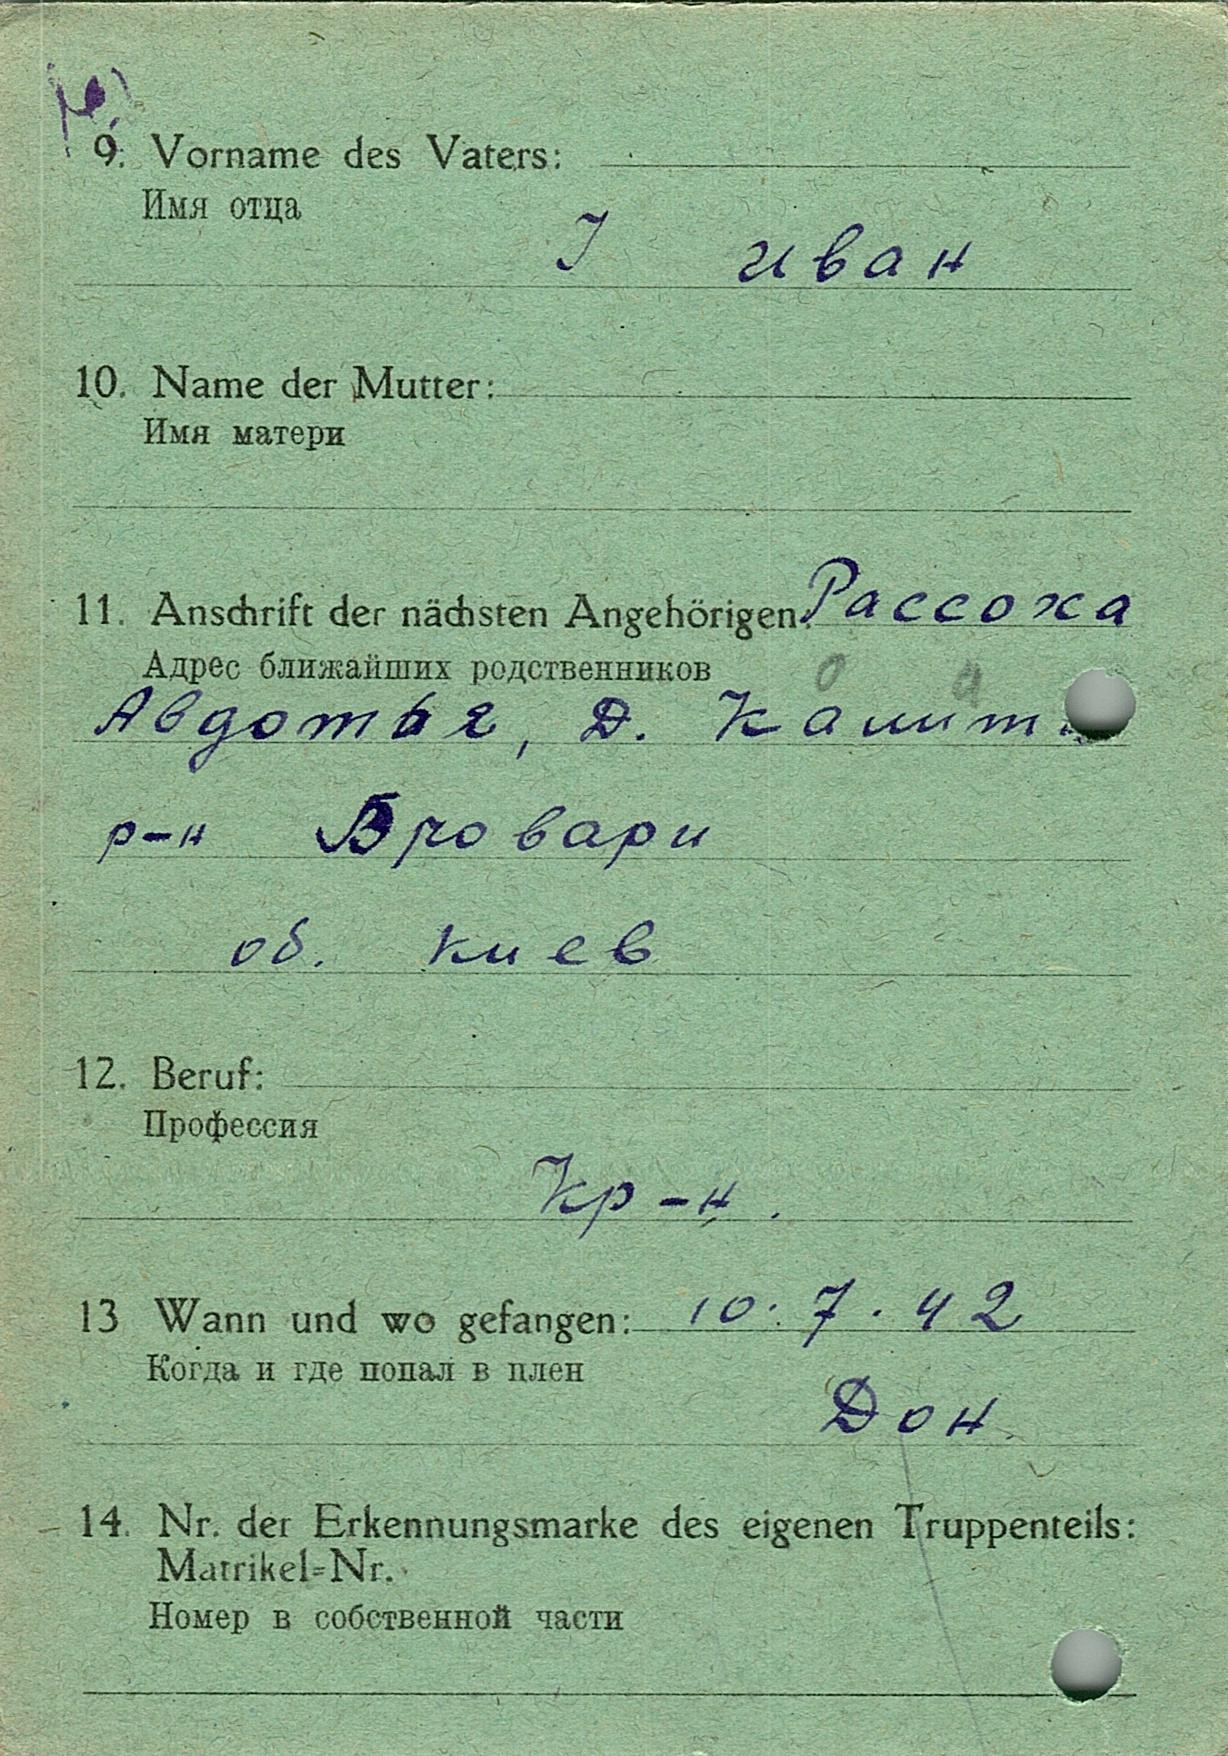 9. Vorname des Vaters:
Имя отца
I Иван
10. Name der Mutter:
Имя матери
11. Anschrift der nächsten Angehörigen: Рассоха
Адрес ближайших родственников
о а
Авдотья, Д. Калит
р-н Бровари
об. Киев
12. Beruf:
Профессия
Кр-н.
13 Wann und wo gefangen: 10.7.42
Когда и где попал в плен
Дон.
14. Nr. der Erkennungsmarke des eigenen Truppenteils:
Matrikel=Nr.
Номер в собственной части